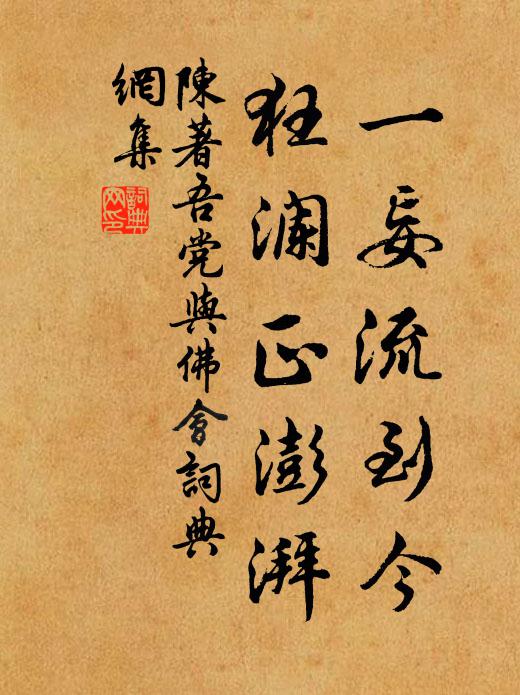 一妄流到今
狂澜正澎湃
陳著吾党與佛會詞典
網集
詞典
网印